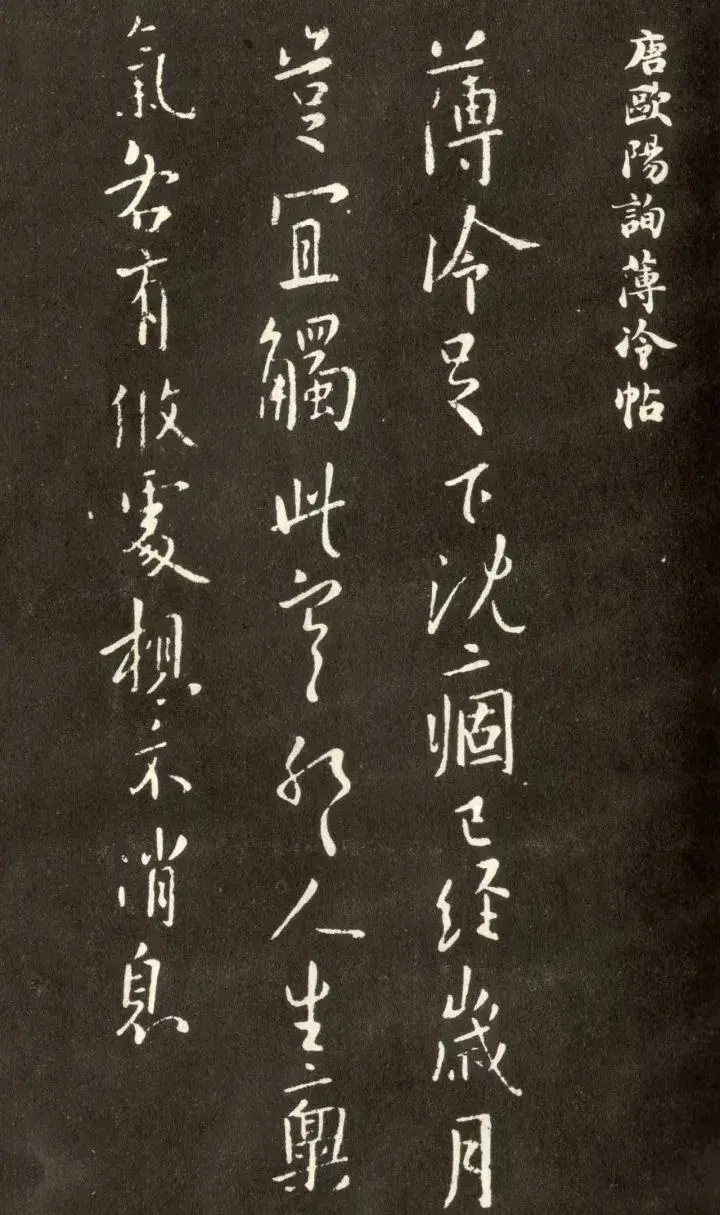 唐歐陽詢薄冷帖
薄冷足下沈痼已経歲月
豈宜觸此寒耶人生稟
氣各有攸處想示消息